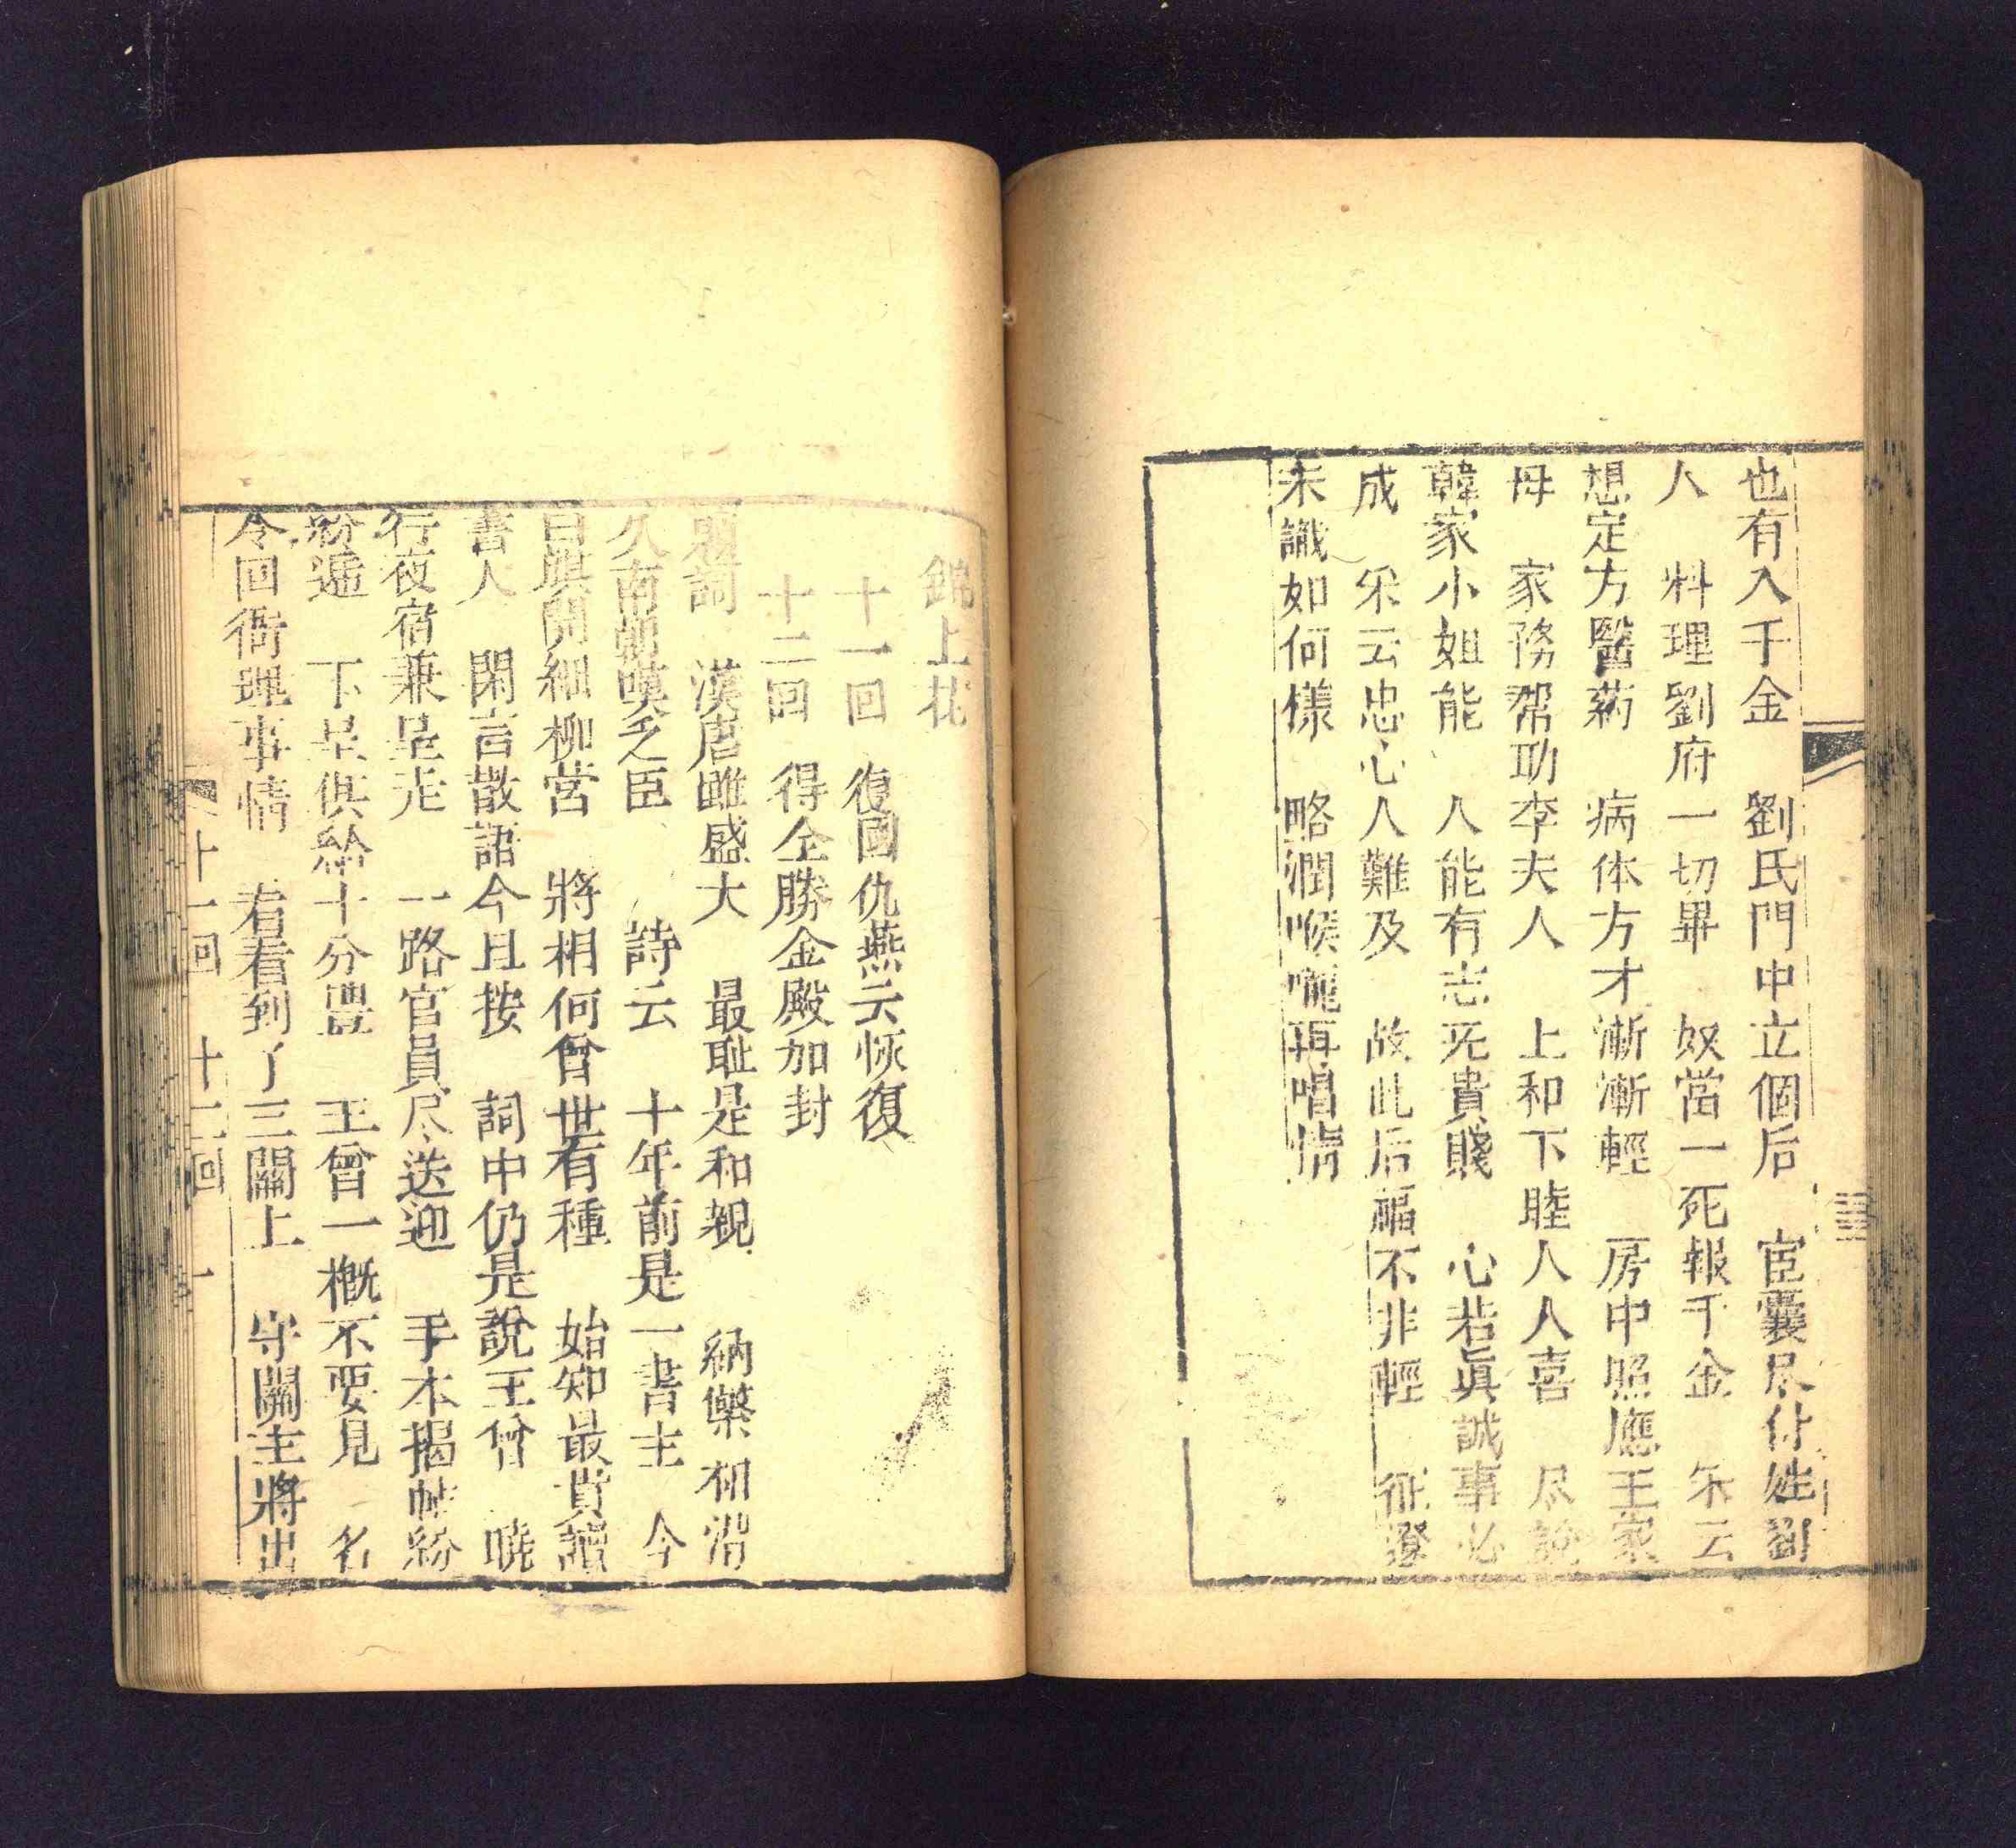 也有入千金　劉氏門中立個后　宦囊尽付姓劉
人　料理劉府一切畢　奴當一死報千金　朱云
想定方醫葯　病体方才漸漸輕　房中照應王家
母　家務帮助李夫人　上和下睦人人喜　尽說
韓家小姐能　人能有志死貴賤　心若眞誠事必
成　朱云忠心人難及　故此后福不非輕　征澄
未識如何樣　略潤喉嚨再唱情
錦上花
十一回　復國仇燕云恢復
十二回　得仝勝金殿加封
題詞　漢唐雖盛大　最耻是和親　納幣相沿
久南朝嘆乏臣　詩云　十年前是一書主　今
日旗開細柳营　將相何曾世有種　始知最貴讀
書人　閑言散語今且按　詞中仍是說王曾　曉
行夜宿兼呈走　一路官員尽送迎　手本揭帖紛
紛遞　下呈供給十分豊　王曾一概不要見　名
令回衙理事情　看看到了三關上　守關主將出
十一回　十二回　一